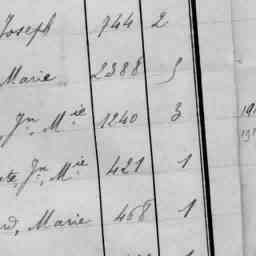 Joseph 744 2
Marie 2388 5
Jn Mie 1240 3
Jn, Mie 421 1
Marie 468 1
1